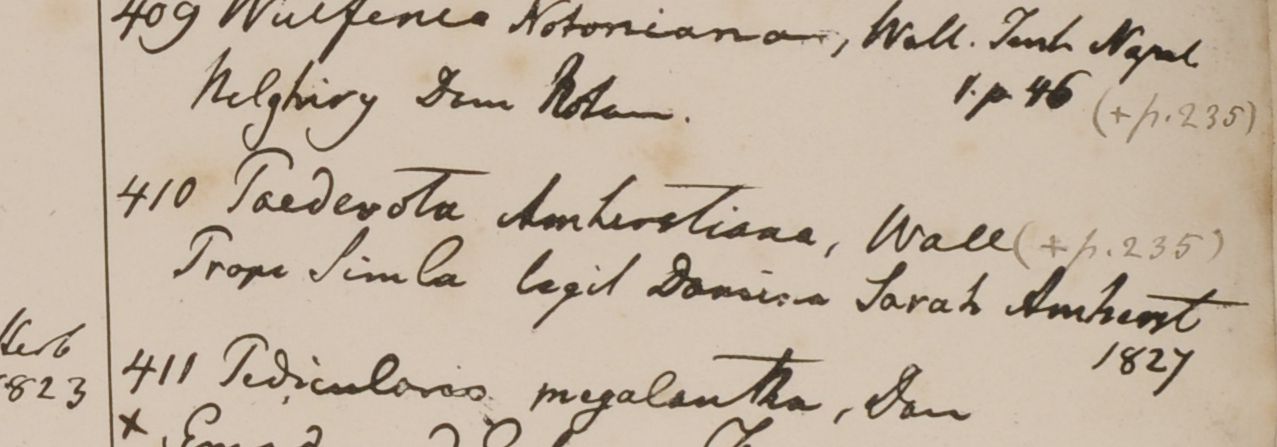 409 Wulfenia Notoniana, Wall. Tent. Napal
Nelghiry Dom Noton.
1. p. 46 (+ p. 235)
410 Paederota Amherstiana, Wall (+ p. 235)
Prope Simla legit Domina Sarah Amherst
1827
Herb
1823
411 Pedicularis megalantha, Don
×